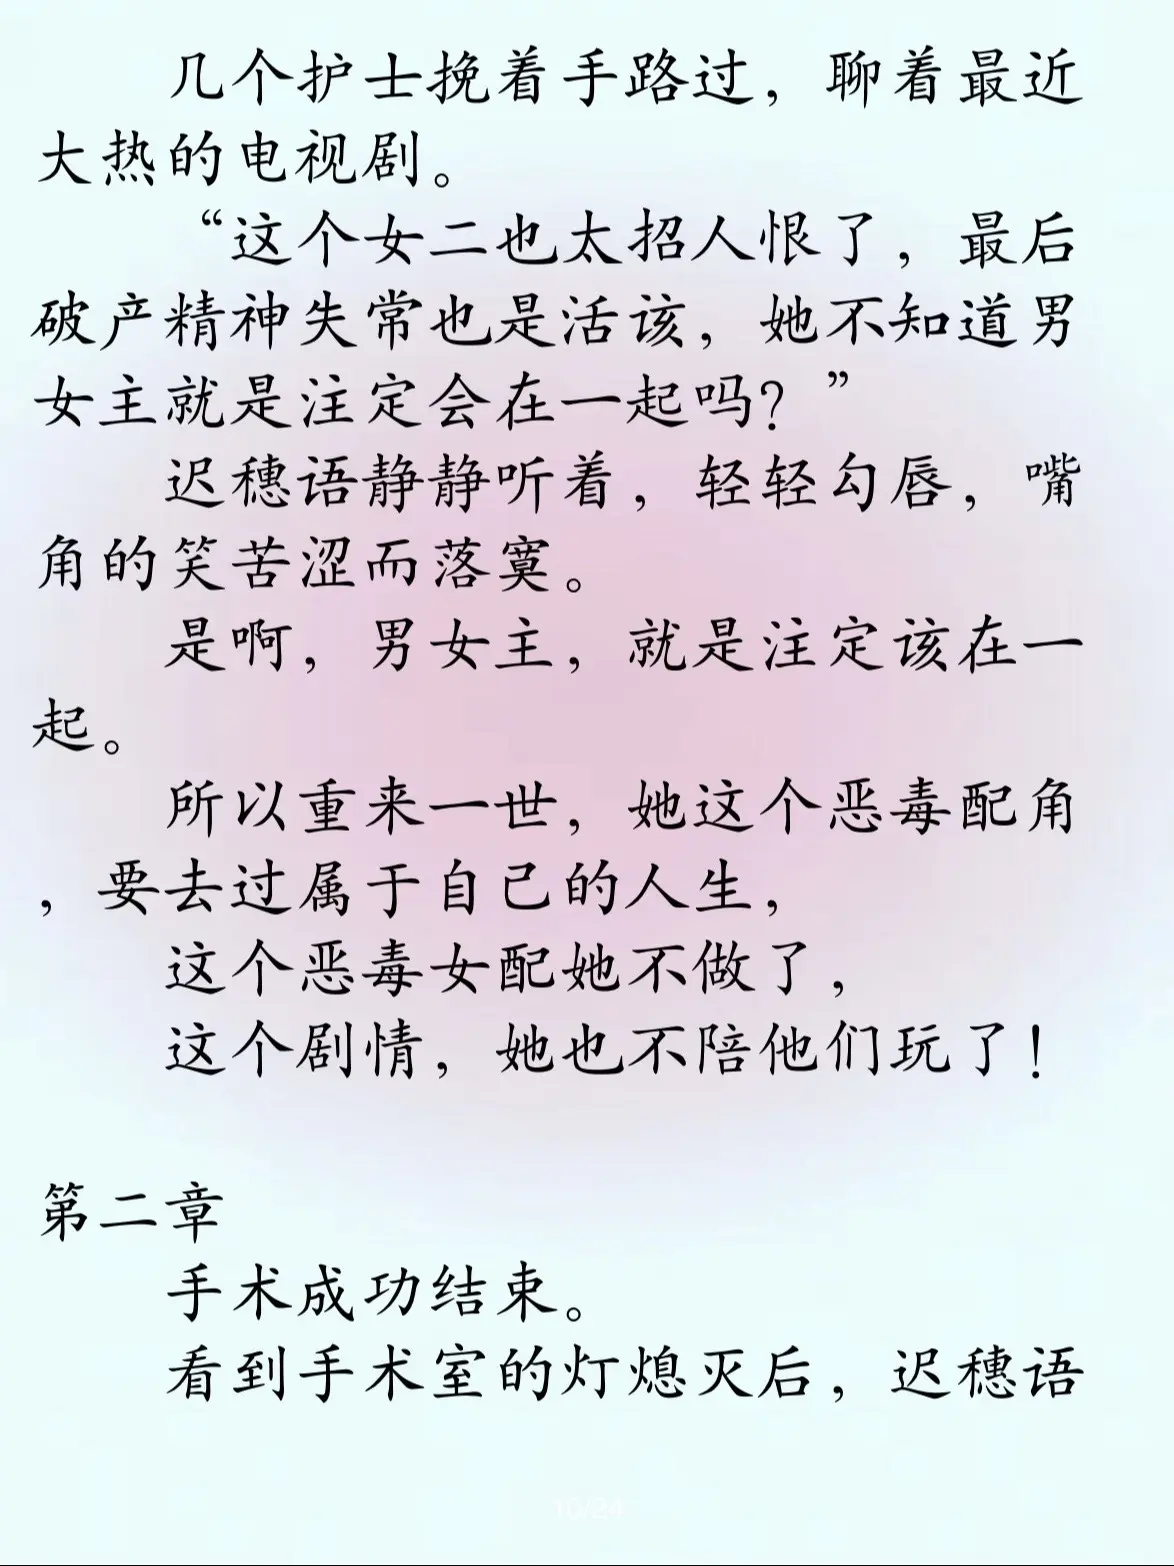 几个护士挽着手路过，聊着最近
大热的电视剧。
“这个女二也太招人恨了，最后
破产精神失常也是活该，她不知道男
女主就是注定会在一起吗？”
迟穗语静静听着，轻轻勾唇，嘴
角的笑苦涩而落寞。
是啊，男女主，就是注定该在一
起。
所以重来一世，她这个恶毒配角
，要去过属于自己的人生，
这个恶毒女配她不做了，
这个剧情，她也不陪他们玩了！
第二章
手术成功结束。
看到手术室的灯熄灭后，迟穗语
10/24